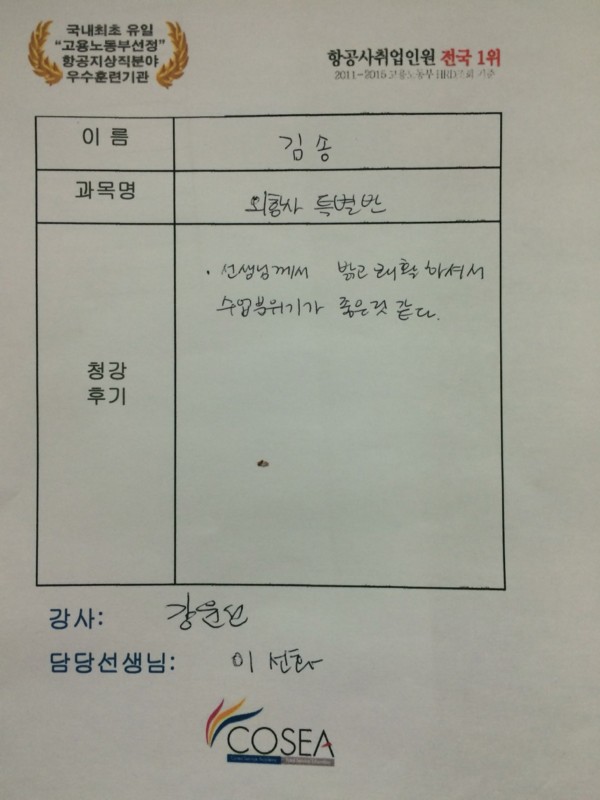 국내최초 유일
"고용노동부선정"
항공지상직분야
우수훈련기관
항공사취업인원 전국 1위
2011-2015 고용노동부 HRD조회 기준
이 름
김송
과목명
외항사 특별반
청강
후기
· 선생님께서 밝고 쾌활하셔서
수업분위기가 좋은것 같다.
강사: 강윤선
담당선생님: 이선화
COSEA